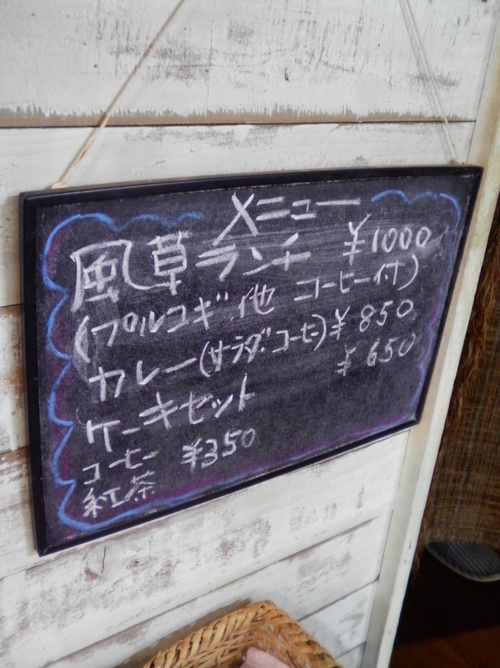 メニュー
風草ランチ ¥1000
(プルコギ他 コーヒー付)
カレー(サラダ・コーヒー) ¥850
ケーキセット ¥650
コーヒー ¥350
紅茶